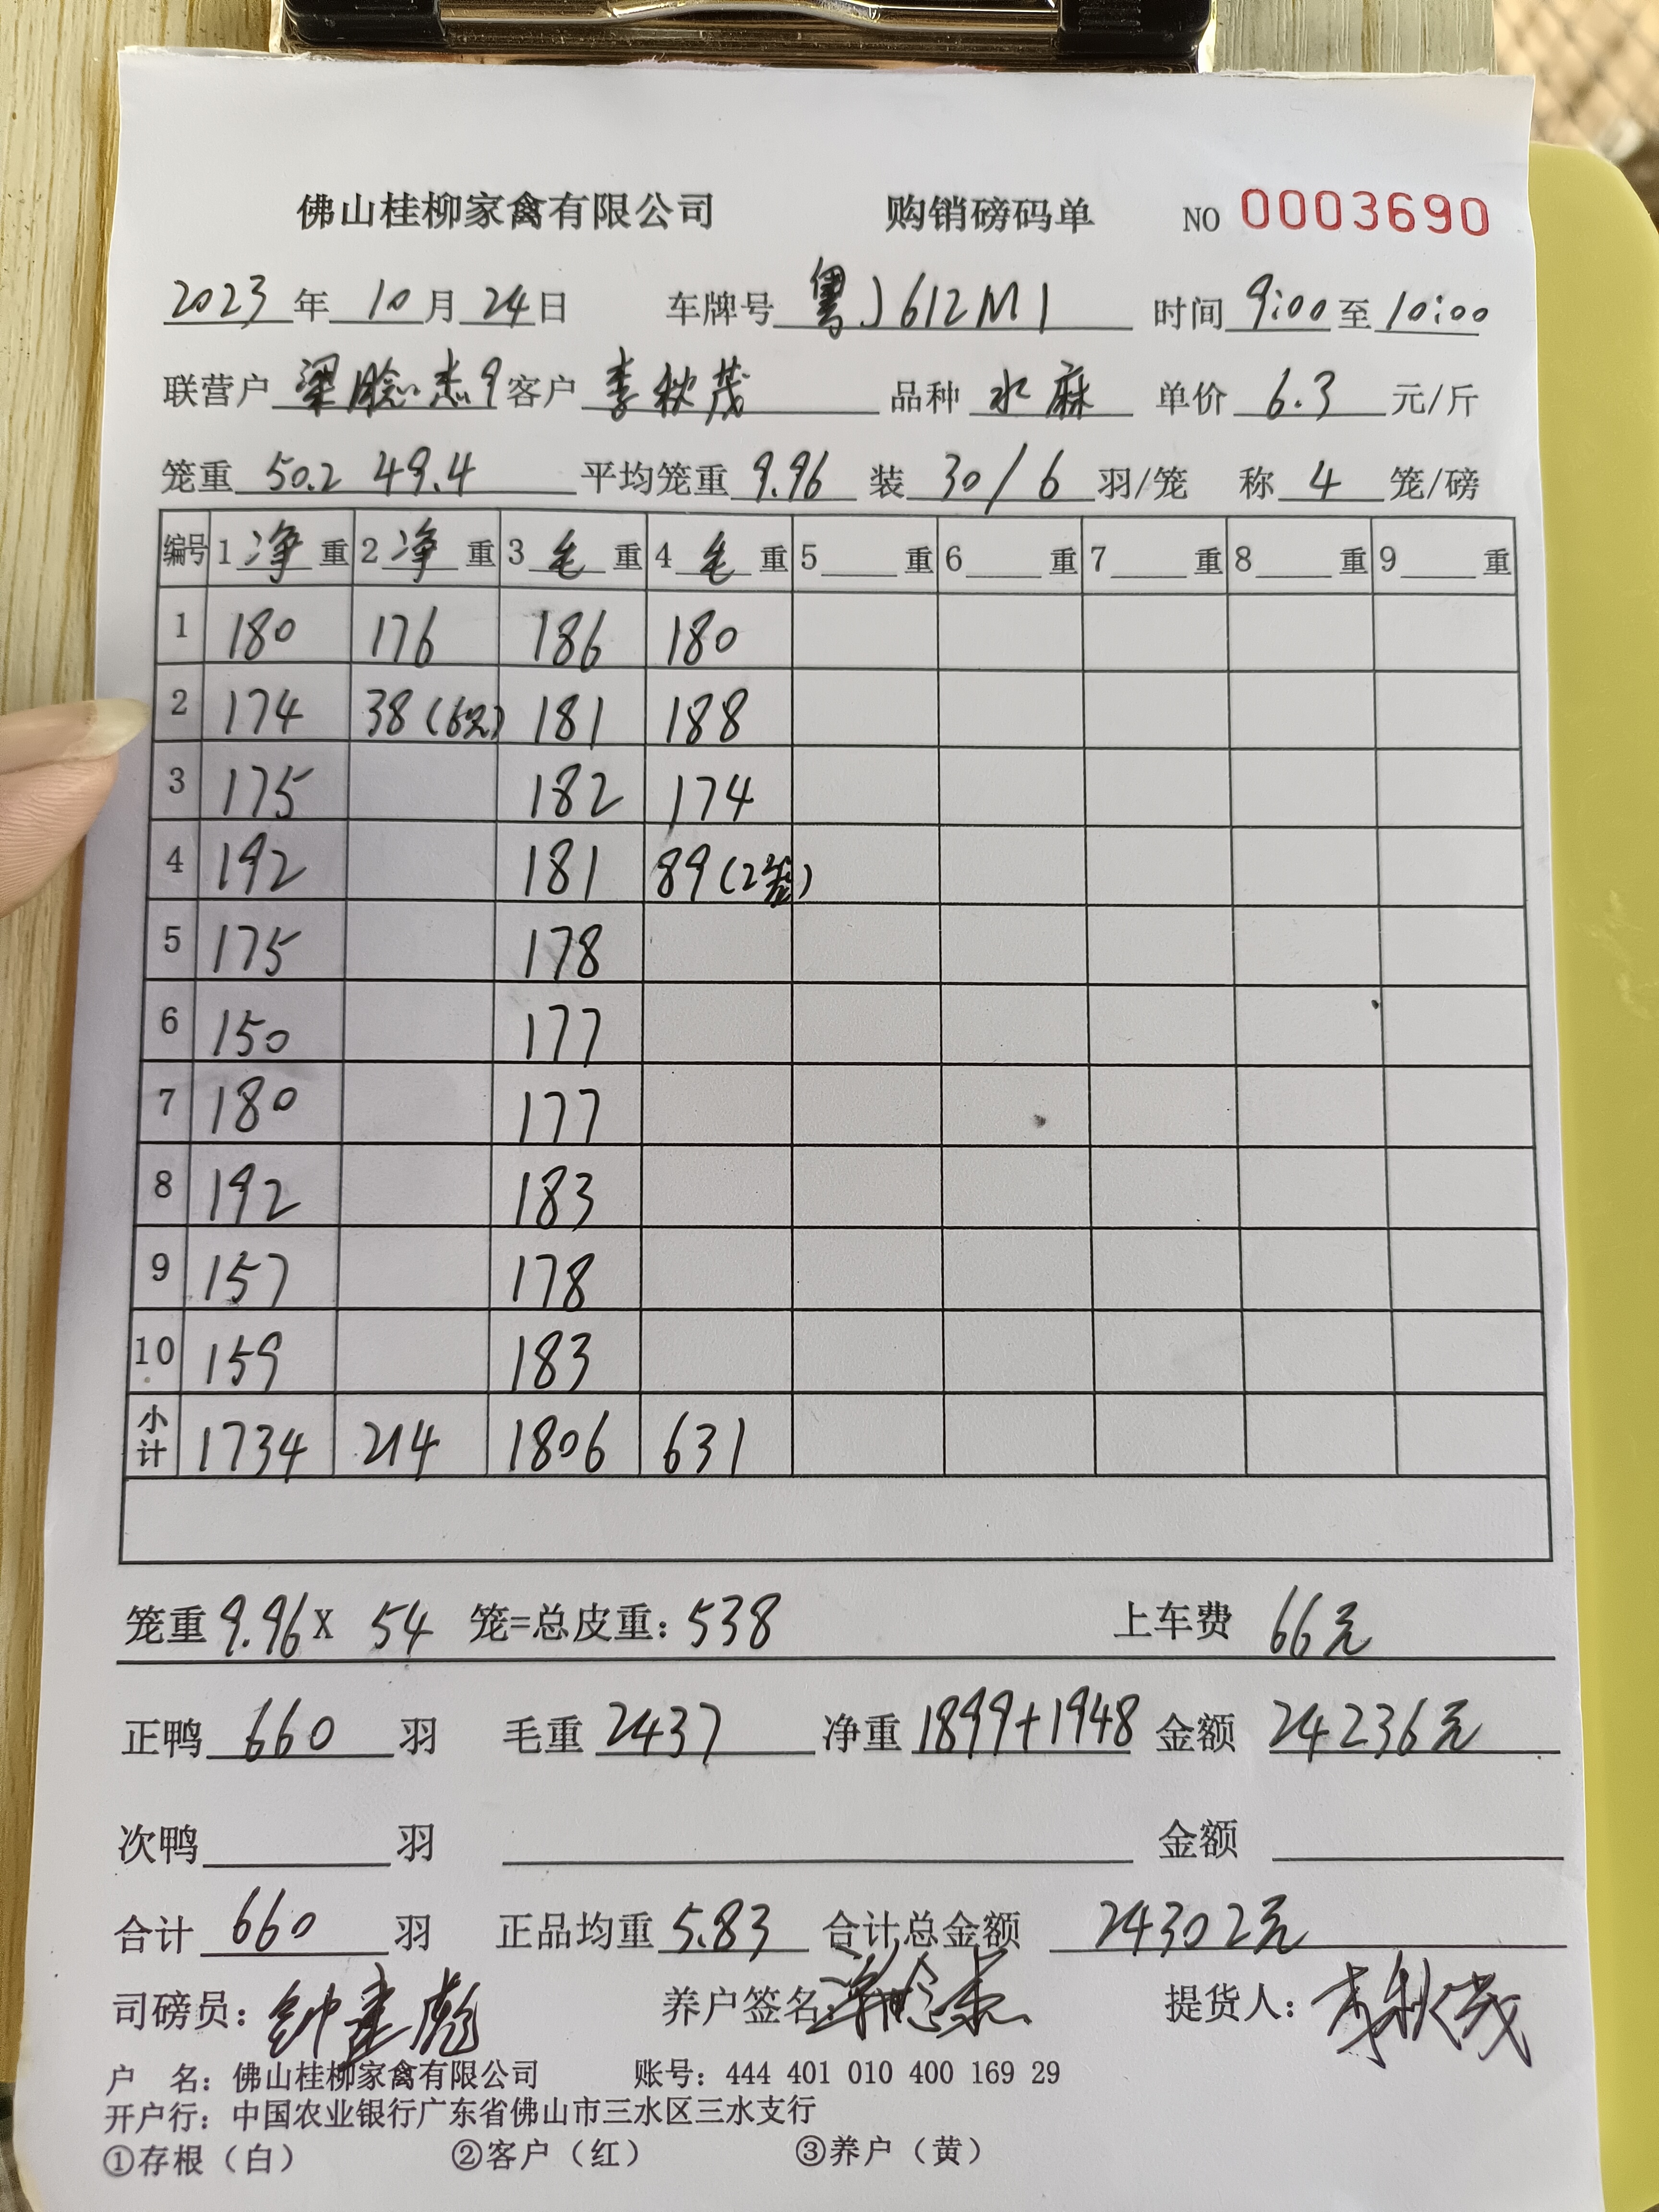 佛山桂柳家禽有限公司 购销磅码单 NO 0003690
2023年 10月 24日 车牌号 粤J612M1 时间 9:00 至 10:00
联营户 梁 杰9 客户 李秋茂 品种 水麻 单价 6.3 元/斤
笼重 50.2 49.4 平均笼重 9.96 装 30/6 羽/笼 称 4 笼/磅
编号 1 净 重 2 净 重 3 毛 重 4 毛 重 5 重 6 重 7 重 8 重 9 重
1 180 176 186 180
2 174 38(6只) 181 188
3 175 182 174
4 192 181 89(2笼)
5 175 178
6 150 177
7 180 177
8 192 183
9 157 178
10 159 183
小计 1734 214 1806 631
笼重 9.96 X 54 笼=总皮重: 538 上车费 66元
正鸭 660 羽 毛重 2437 净重 1899+1948 金额 24236元
次鸭 羽 金额
合计 660 羽 正品均重 5.83 合计总金额 24302元
司磅员: 钟 彪 养户签名: 提货人: 李秋茂
户 名: 佛山桂柳家禽有限公司 账号: 444 401 010 400 169 29
开户行: 中国农业银行广东省佛山市三水区三水支行
①存根（白） ②客户（红） ③养户（黄）